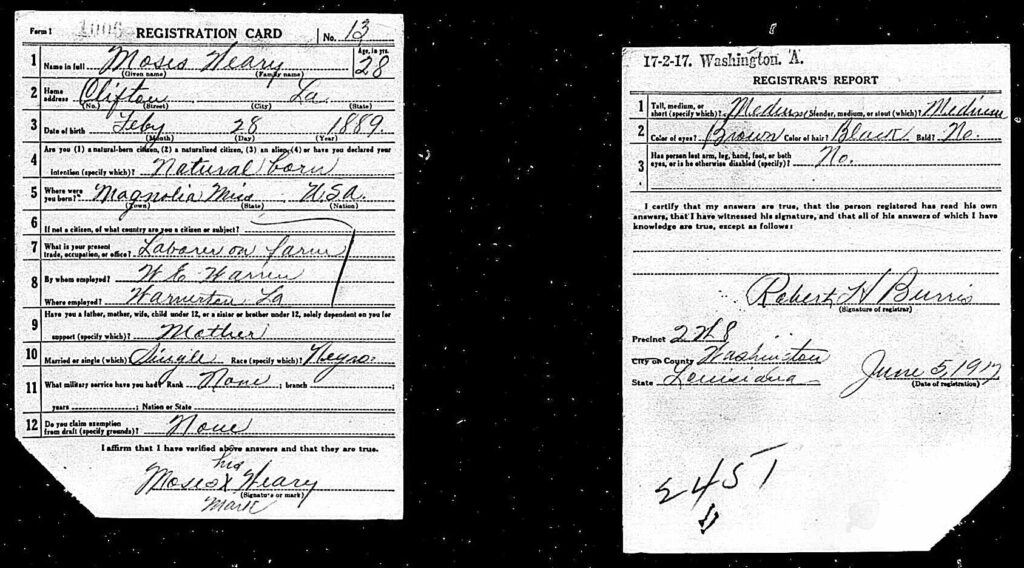 Form 1 1006 REGISTRATION CARD No. 13
1 Name in full Moses Weary Age, in yrs. 28
(Given name) (Family name)
2 Home address Clifton La
(No.) (Street) (City) (State)
3 Date of birth Feby 28 1889.
(Month) (Day) (Year)
4 Are you (1) a natural-born citizen, (2) a naturalized citizen, (3) an alien, (4) or have you declared your
intention (specify which)? Natural born
5 Where were you born? Magnolia Miss U.S.A.
(Town) (State) (Nation)
6 If not a citizen, of what country are you a citizen or subject?
7 What is your present trade, occupation, or office? Laborer on farm
8 By whom employed? W E Warren
Where employed? Warnerton La
9 Have you a father, mother, wife, child under 12, or a sister or brother under 12, solely dependent on you for
support (specify which)? Mother
10 Married or single (which)? Single Race (specify which)? Negro.
11 What military service have you had? Rank None ; branch ;
years ; Nation or State
12 Do you claim exemption from draft (specify grounds)? None
I affirm that I have verified above answers and that they are true.
his
Moses X Weary
(Signature or mark)
Mark
17-2-17. Washington. A.
REGISTRAR'S REPORT
1 Tall, medium, or short (specify which)? Medium Slender, medium, or stout (which)? Medium
2 Color of eyes? Brown Color of hair? Black Bald? No.
3 Has person lost arm, leg, hand, foot, or both eyes, or is he otherwise disabled (specify)? No.
I certify that my answers are true, that the person registered has read his own
answers, that I have witnessed his signature, and that all of his answers of which I have
knowledge are true, except as follows:
Robert H Burris
(Signature of registrar)
Precinct 2 W 8
City or County Washington
State Louisiana June 5, 1917
(Date of registration)
2451